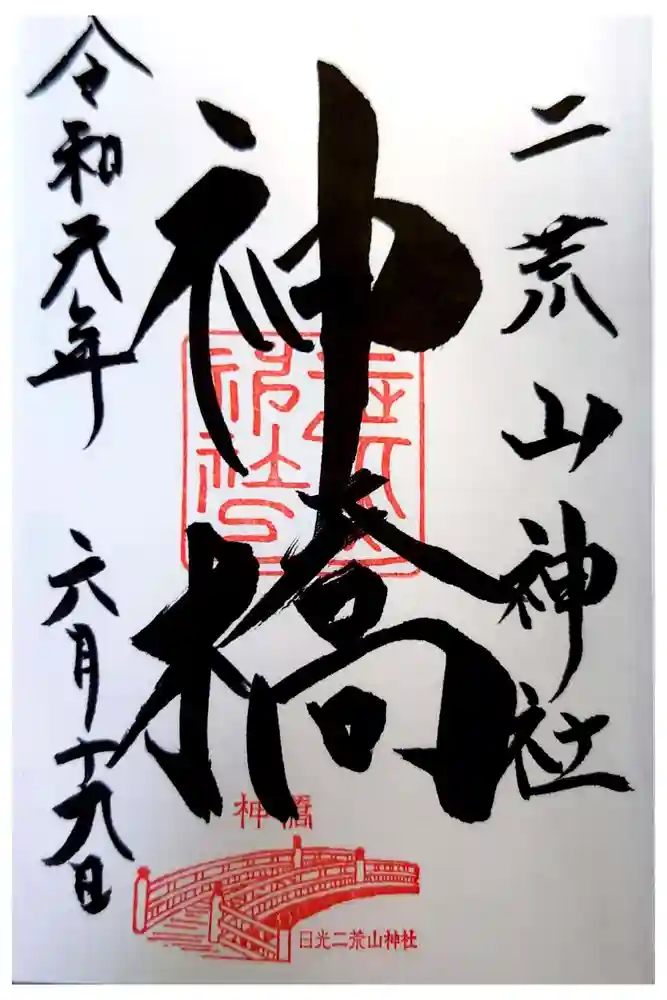 二荒山神社
神橋
令和元年 六月十九日
神橋
日光二荒山神社